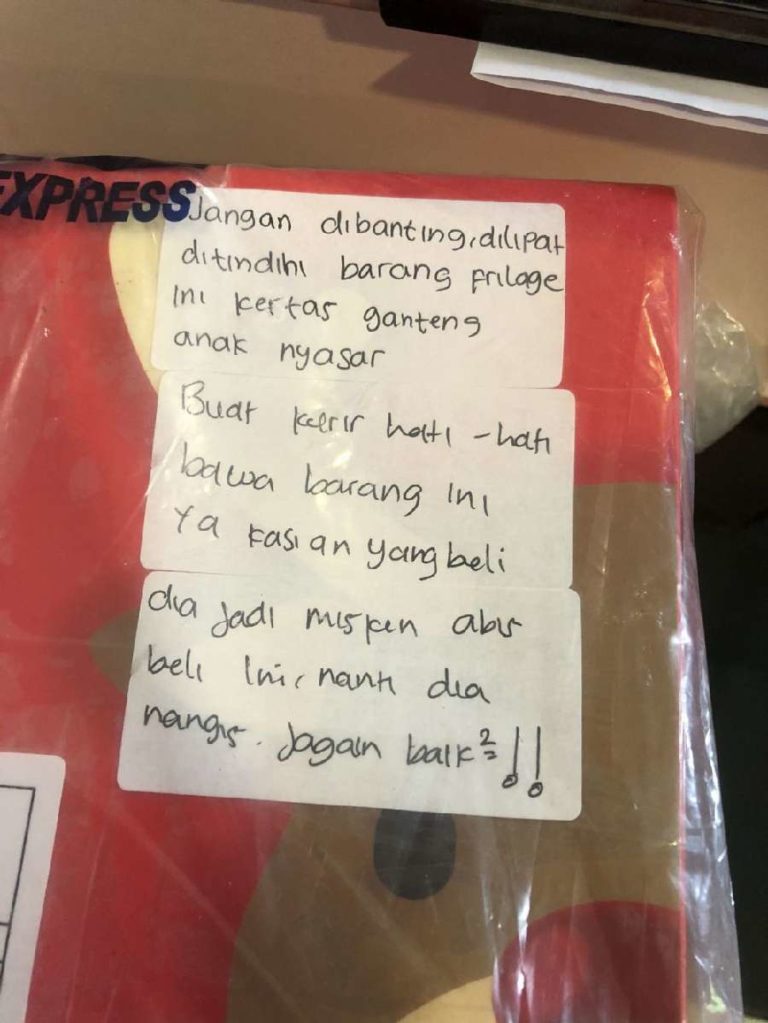 EXPRESS
Jangan dibanting, dilipat
ditindihi barang prilage
ini kertas ganteng
anak nyasar
Buat kurir hati-hati
bawa barang ini
Ya kasian yang beli
dia jadi misken abis
beli ini, nanti dia
nangis. Jagain baik²!!